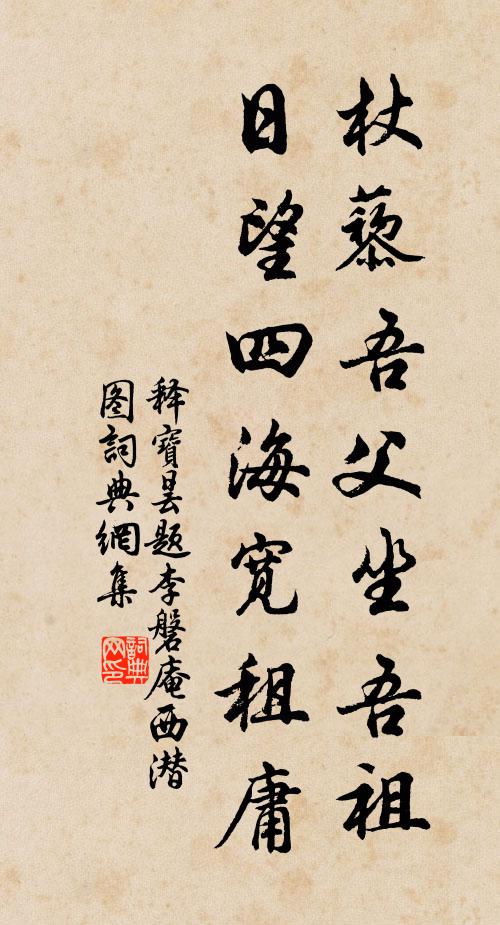 杖藜吾父坐吾祖
日望四海宽租庸
释寶昙题李磐庵西潜
图詞典網集
詞典
网印